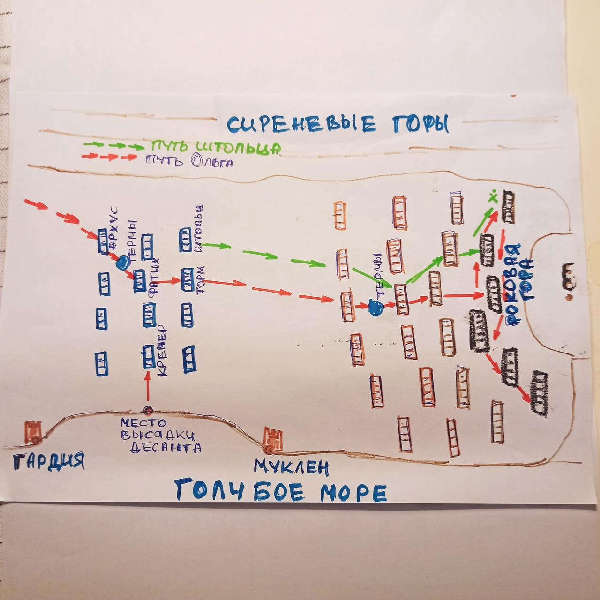 СИРЕНЕВЫЕ ГОРЫ
ПУТЬ ШТОЛЬЦА
ПУТЬ ОЛЬГА
АРХУС
ТЕРМЫ
ФАТИХ
ШТОЛЬЦ
ТОРМ
КРЕМЕР
ТЕРМЫ
РОКОВАЯ
ГОРА
МЕСТО
ВЫСАДКИ
ДЕСАНТА
ГАРДИЯ
МУКЛЕН
ГОЛУБОЕ МОРЕ